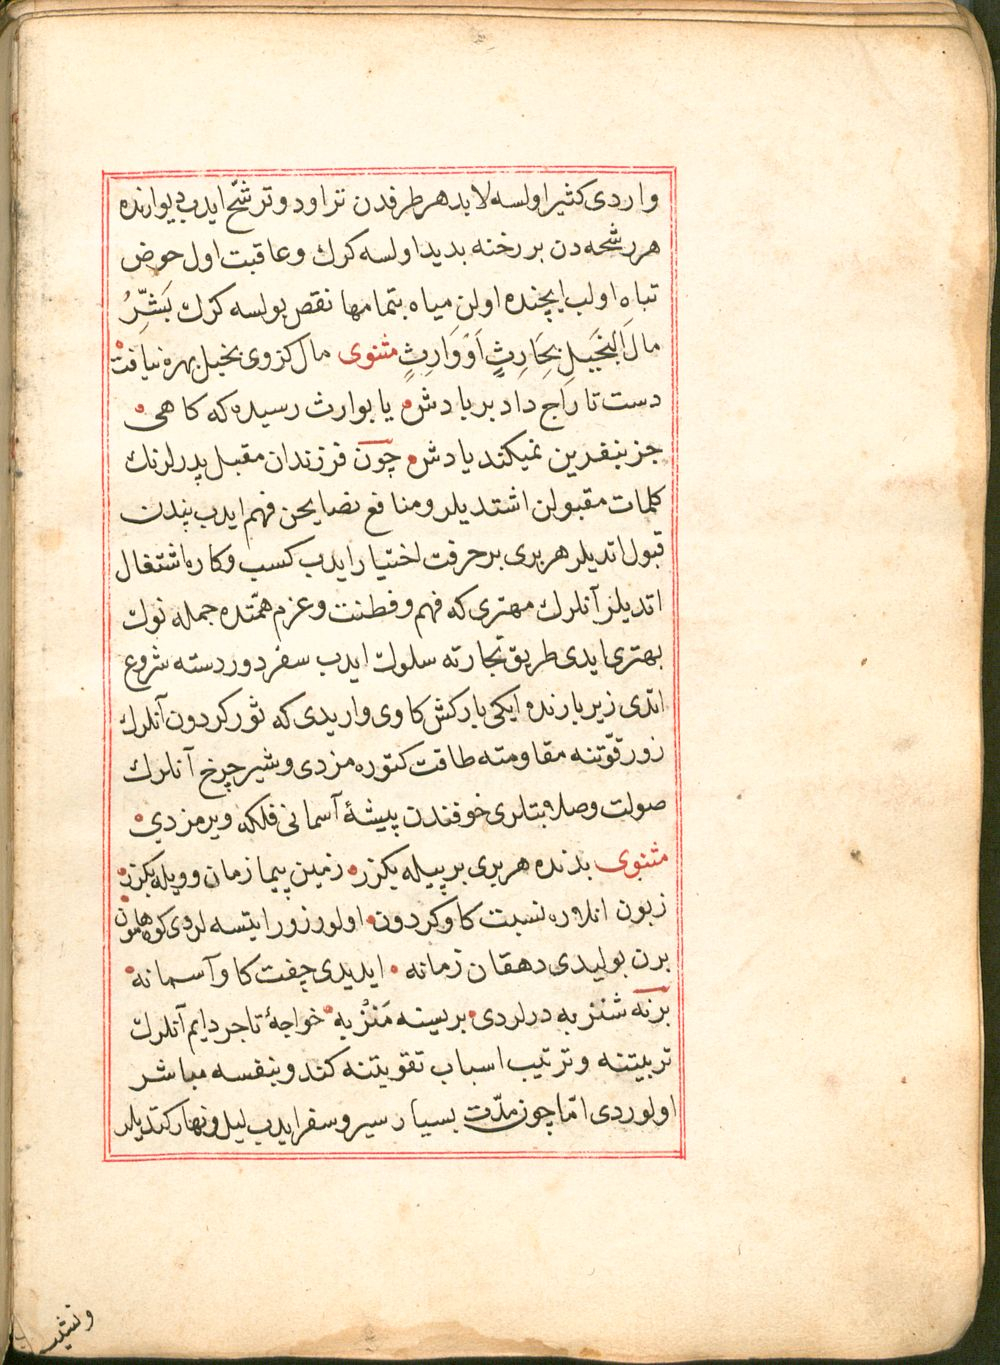 واردی کثیر اولسه لابد هر طرفدن تراود و ترشّح ایدب دیوارنده
هر رشحه دن بر رخنه بدید اولسه کرك و عاقبت اول حوض
تباه اولب ایچنده اولن میاه بتمامها نقص بولسه کرك بَشِّرُ
مالَ البَخیلِ بِحَارِثٍ اَوْ وَارِثٍ مثنوی مال کزوی بخیل بهره نیافت
دست تاراج داد بر بادش یا بوارث رسیده که کاهی
جز بنفرین نمیکند یادش چون فرزندان مقبل پدرلرنك
کلمات مقبولن اشتدیلر و منافع نصایحن فهم ایدب پندن
قبول اتدیلر هر بری بر حرفت اختیار ایدب کسب و کاره اشتغال
اتدیلر آنلرك مهتری که فهم و فطنت و عزم همّتده جمله نوك
بهتری ایدی طریق تجارته سلوك ایدب سفر دوردسته شروع
اتدی زیر بارنده ایکی بارکش کاوی واریدی که ثور کردون آنلرك
زور قوّتنه مقاومته طاقت کتوره مزدی و شیر چرخ آنلرك
صولت و صلابتلری خوفندن پیشهٔ آسمانی فلکه ویرمزدی
مثنوی بدنده هر بری بر پیله بکزر زمین پیما زمان وویله بکزر
زبون انلاره نسبت کاو کردون اولو زور ایتسه لردی کوه هامون
برن بولیدی دهقان زمانه ایدیدی جفت کاو آسمانه
برنه شنزبه درلردی برسینه مَنْزبه خواجهٔ تاجر دایم آنلرك
تربیتنه و ترتیب اسباب تقویتنه کندو بنفسه مباشر
اولوردی امّا چون مدّت بسیار سیر و سفر ایدب لیل و نهار کتدیلر